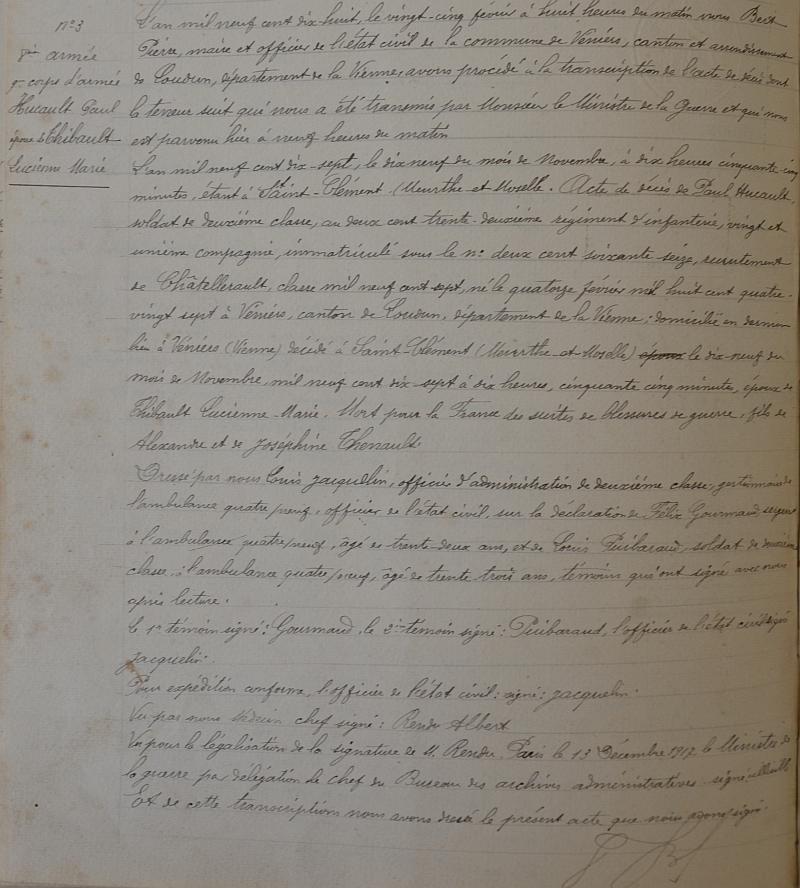 N° 3
8me armée
9e corps d'armée
Hucault Paul
époux de Thibault
Lucienne Marie
L'an mil neuf cent dix-huit, le vingt-cinq février à huit heures du matin nous Bert
Pierre, maire et officier de l'état civil de la commune de Véniers, canton et arrondissement
de Loudun, département de la Vienne, avons procédé à la transcription de l'acte de décès dont
la teneur suit qui nous a été transmis par Monsieur le Ministre de la Guerre et qui nous
est parvenu hier à neuf heures du matin
L'an mil neuf cent dix-sept, le dix neuf du mois de Novembre, à dix heures cinquante-cinq
minutes, étant à Saint-Clément (Meurthe-et-Moselle. Acte de décès de Paul Hucault,
soldat de deuxième classe, au deux cent trente-deuxième régiment d'infanterie, vingt et
unième compagnie, immatriculé sous le n° deux cent soixante seize, recrutement
de Châtellerault, classe mil neuf cent sept, né le quatorze février mil huit cent quatre-
vingt sept à Véniers, canton de Loudun, département de la Vienne, domicilié en dernier
lieu à Véniers (Vienne) décédé à Saint-Clément (Meurthe-et-Moselle) époux le dix-neuf du
mois de Novembre, mil neuf cent dix-sept à dix heures, cinquante cinq minutes, époux de
Thibault Lucienne-Marie. Mort pour la France des suites de blessures de guerre, fils de
Alexandre et de Joséphine Thenault.
Dressé par nous Louis Jacquelin, officier d'administration de deuxième classe, gestionnaire de
l'ambulance quatre/neuf, officier de l'état civil, sur la déclaration de Félix Gourmaud sergent
à l'ambulance quatre/neuf, âgé de trente deux ans, et de Louis Puibaraud, soldat de deuxième
classe, à l'ambulance quatre/neuf, âgé de trente trois ans, témoins qui ont signé avec nous
après lecture.
Le 1er témoin signé: Gourmaud, le 2me témoin signé: Puibaraud, l'officier de l'état civil signé
Jacquelin.
Pour expédition conforme, l'officier de l'état civil: signé: Jacquelin.
Vu par nous Médecin chef signé: Rendu Albert
Vu pour la légalisation de la signature de M. Rendu. Paris le 13 Décembre 1917 le Ministre de
la guerre par délégation le chef du Bureau des archives administratives signé:
Et de cette transcription nous avons dressé le présent acte que nous avons signé.